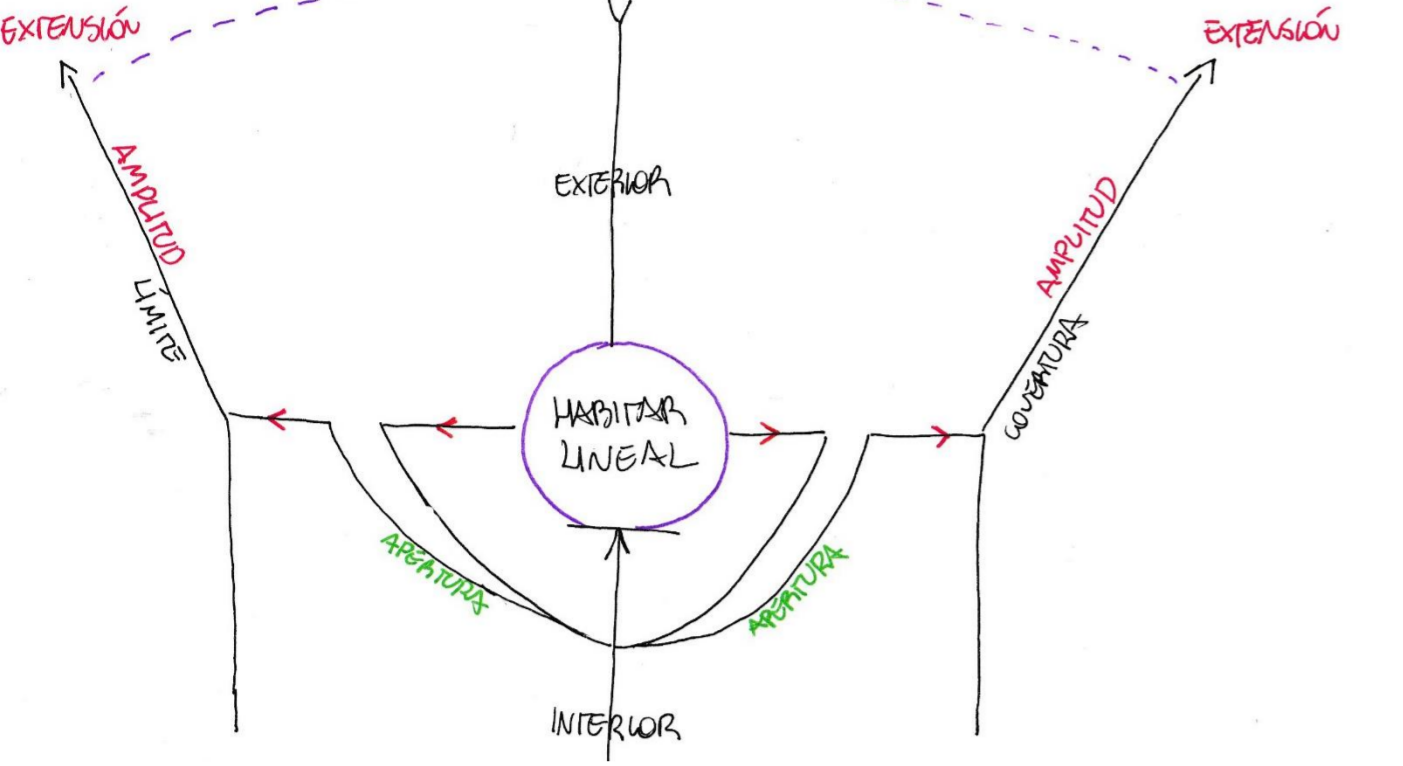 EXTENSIÓN
EXTENSIÓN
AMPLITUD
LÍMITE
EXTERIOR
AMPLITUD
COVERTURA
HABITAR
LINEAL
APERTURA
APERTURA
INTERIOR